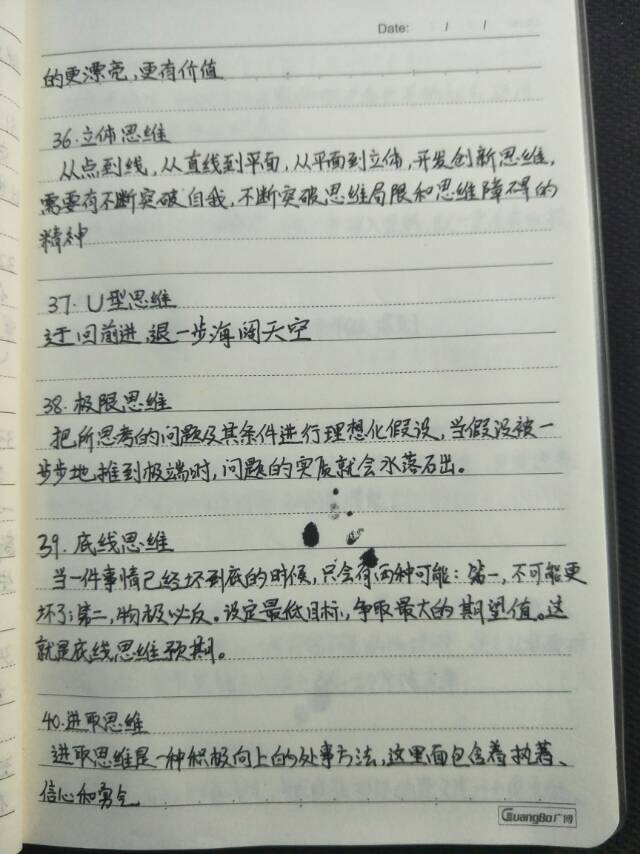 Date: / /
的更漂亮,更有价值
36.立体思维
从点到线,从直线到平面,从平面到立体,开发创新思维,
需要有不断突破自我,不断突破思维局限和思维障碍的
精神
37.U型思维
迂回前进,退一步海阔天空
38.极限思维
把所思考的问题及其条件进行理想化假设,当假设被一
步步地推到极端时,问题的实质就会水落石出。
39.底线思维
当一件事情已经坏到底的时候,只会有两种可能:第一,不可能更
坏了;第二,物极必反。设定最低目标,争取最大的期望值。这
就是底线思维预期。
40.进取思维
进取思维是一种积极向上的处事方法,这里面包含着执著、
信心和勇气
GuangBo广博